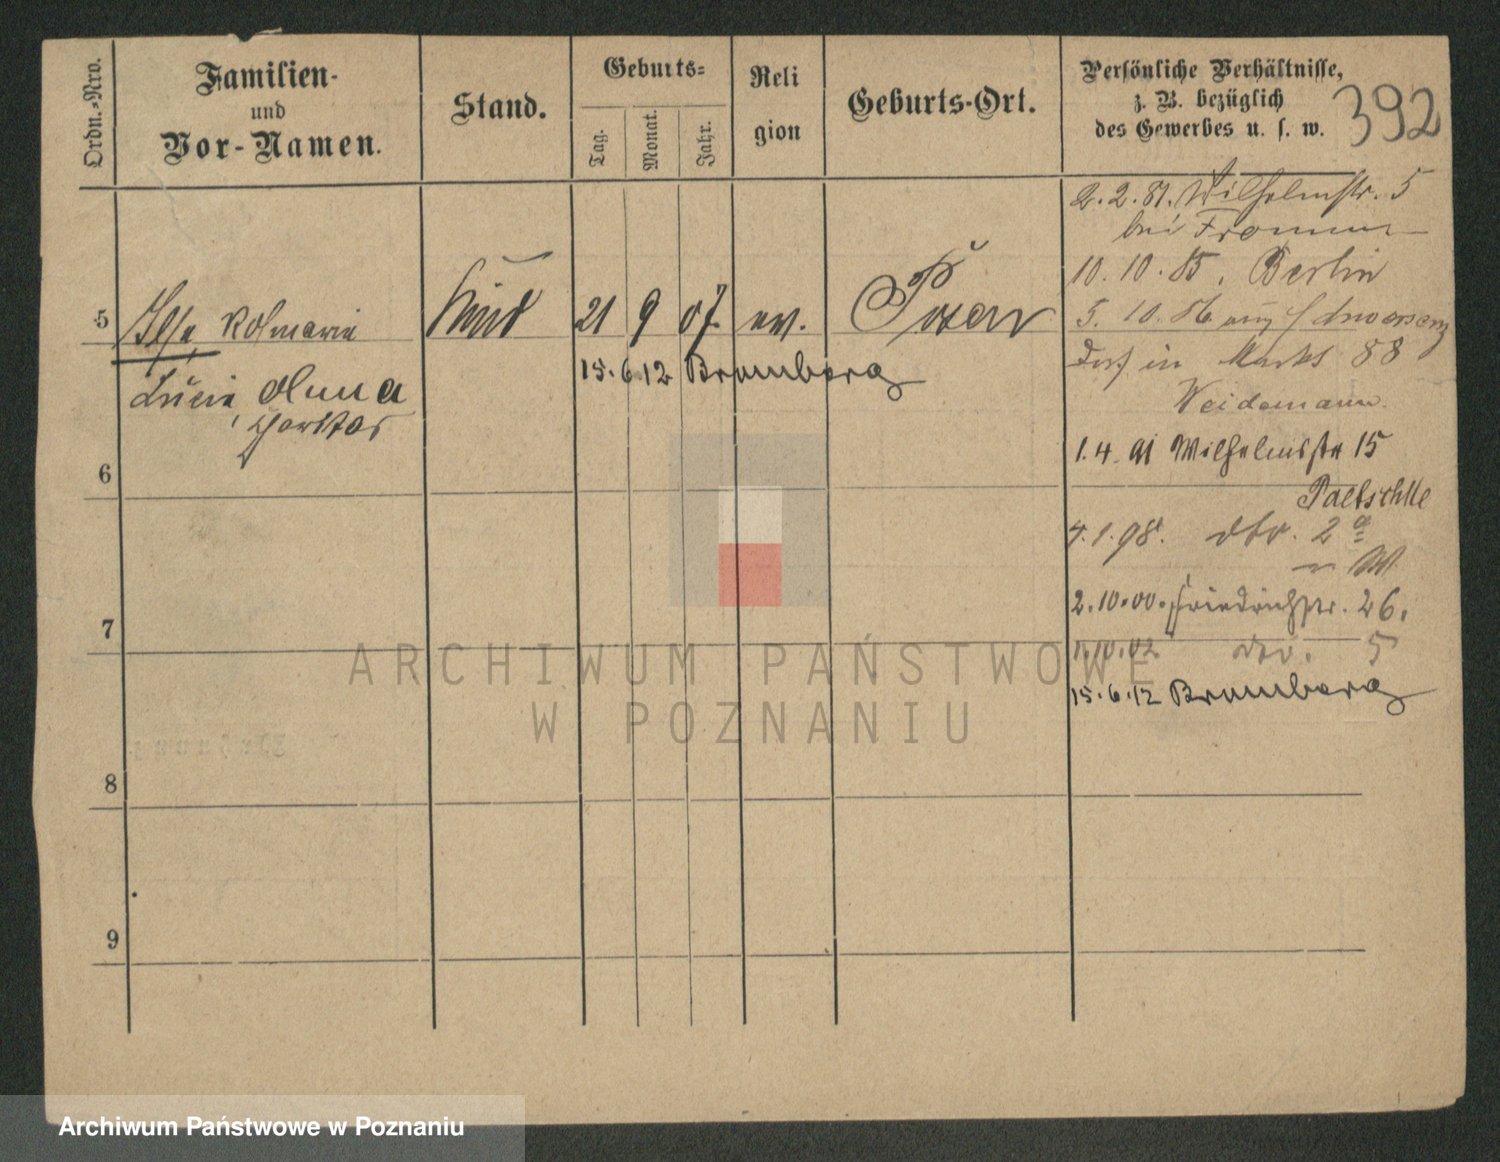 Ordn.-Nro.
Familien-
und
Vor-Namen.
Stand.
Geburts-
Tag.
Monat.
Jahr.
Reli
gion
Geburts-Ort.
Persönliche Verhältnisse,
z. B. bezüglich
des Gewerbes u. s. w.
392
5
Ilse Rosmarie
Lucie, Anna
Kind
21 9 07. ev. Posen
15.6.12 Bromberg
2.2.81. Wilhelmstr. 5
bei Fromm
10.10.85. Berlin
5.10.86 aus
in Markt 88
Weidemann
1.4.91 Wilhelmstr 15
Paetschke
4.1.98. dto. 2 a
W
2.10.00. Friedrichstr. 26.
1.10.02 dto. 5
15.6.12 Bromberg
6
7
8
9
ARCHIWUM PAŃSTWOWE
W POZNANIU
Archiwum Państwowe w Poznaniu